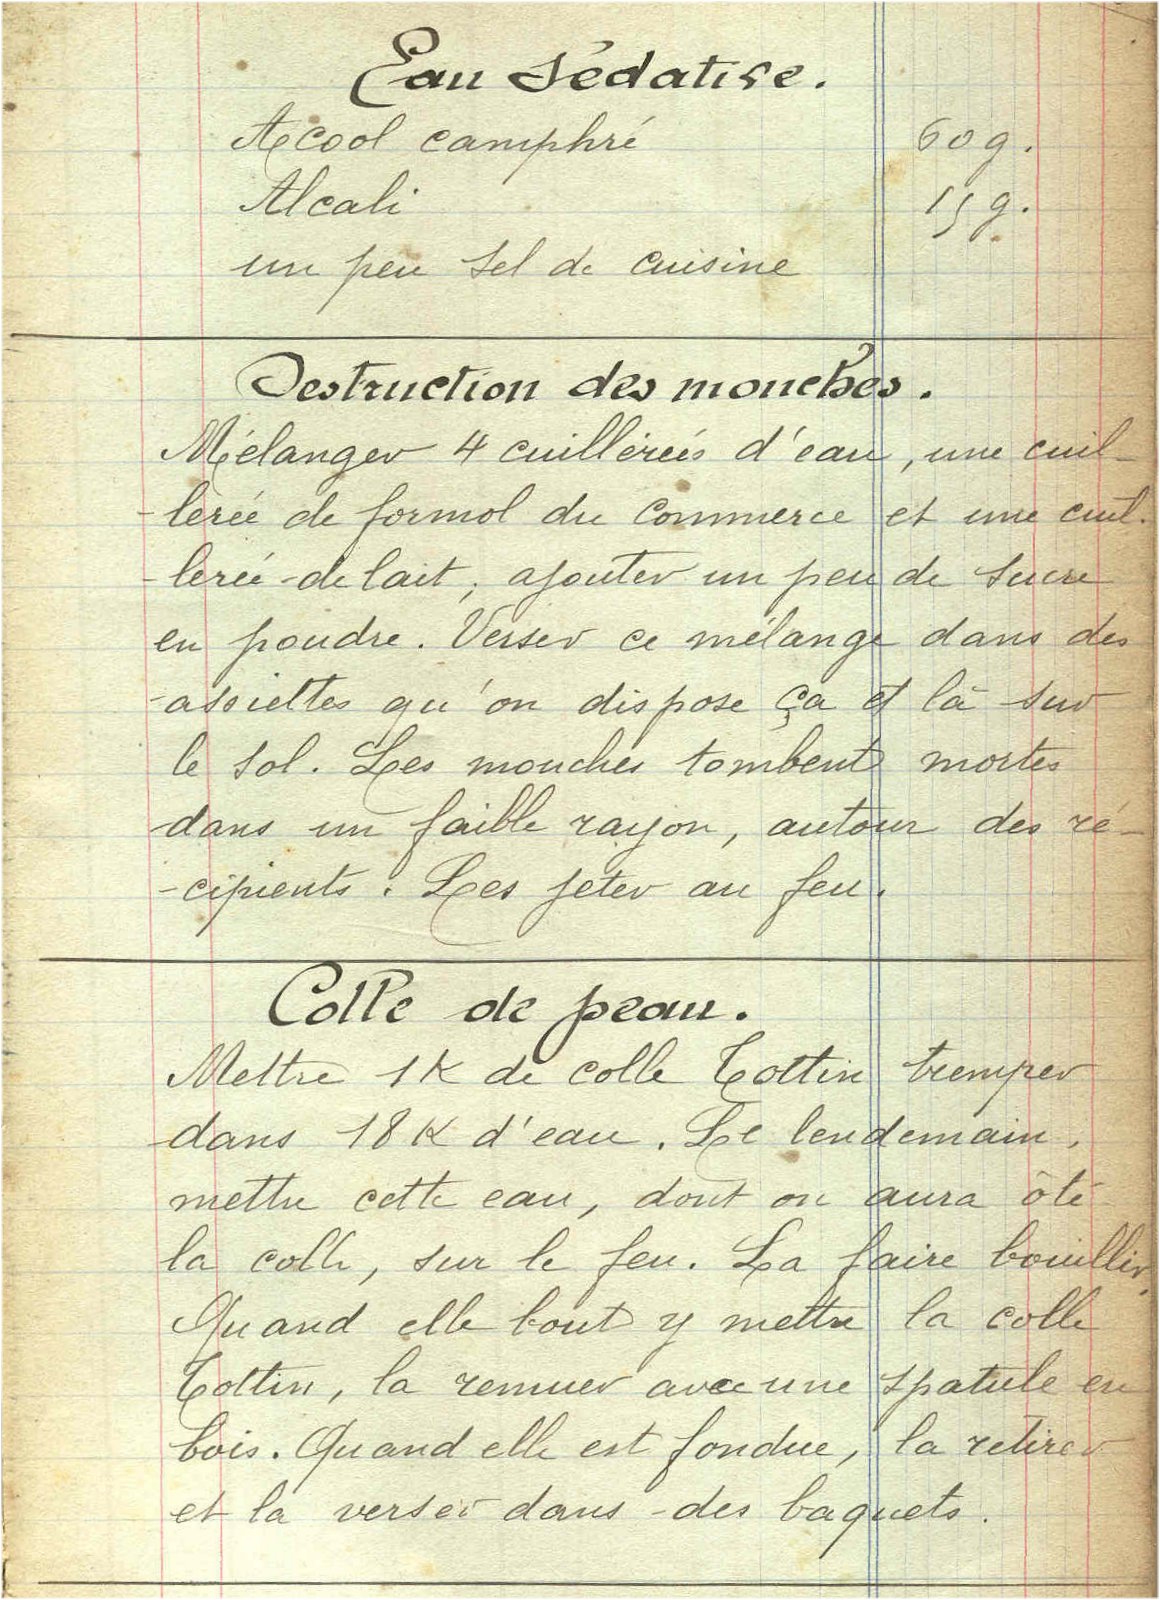 Eau Sédative.
Alcool camphré 60 g.
Alcali 15 g.
un peu sel de cuisine
Destruction des mouches.
Mélanger 4 cuillérées d'eau, une cuil-
-lerée de formol du Commerce et une cuil-
-lerée de lait, ajouter un peu de sucre
en poudre. Verser ce mélange dans des
assiettes qu'on dispose ça et là sur
le sol. Les mouches tombent mortes
dans un faible rayon, autour des ré-
-cipients. Les jeter au feu.
Colle de peau.
Mettre 1 K de colle Tottin tremper
dans 18 K d'eau. Le lendemain,
mettre cette eau, dont on aura ôté
la colle, sur le feu. La faire bouillir.
Quand elle bout y mettre la colle
Tottin, la remuer avec une spatule en
bois. Quand elle est fondue, la retirer
et la verser dans des baquets.